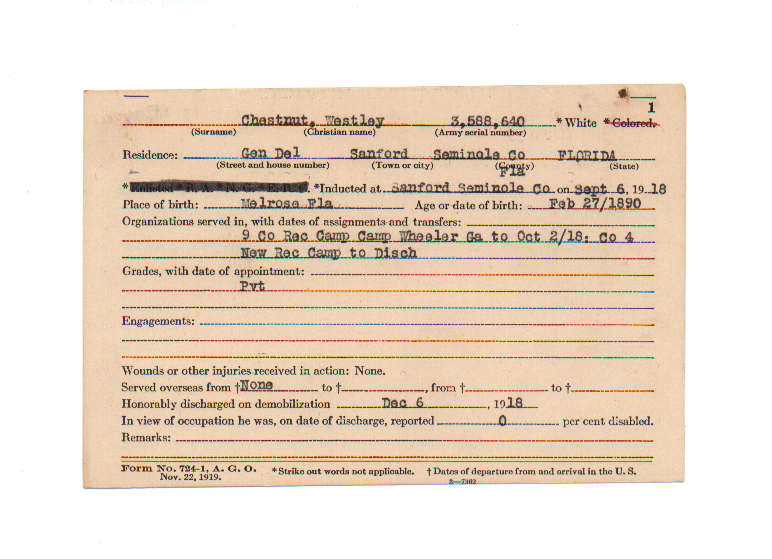 1
Chestnut, Westley 3,588,640 *White *Colored.
(Surname) (Christian name) (Army serial number)
Residence: Gen Del Sanford Seminole Co FLORIDA
(Street and house number) (Town or city) (County) (State)
Fla
*Enlisted * R. A. * N. G. * E. R. C. *Inducted at Sanford Seminole Co on Sept 6, 1918
Place of birth: Melrose Fla Age or date of birth: Feb 27/1890
Organizations served in, with dates of assignments and transfers:
9 Co Rec Camp Camp Wheeler Ga to Oct 2/18; Co 4
New Rec Camp to Disch
Grades, with date of appointment:
Pvt
Engagements:
Wounds or other injuries received in action: None.
Served overseas from †None to †, from † to †
Honorably discharged on demobilization Dec 6, 1918
In view of occupation he was, on date of discharge, reported 0 per cent disabled.
Remarks:
Form No. 724-1, A. G. O. *Strike out words not applicable. † Dates of departure from and arrival in the U. S.
Nov. 22, 1919.